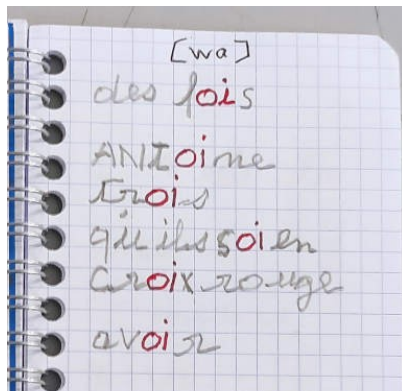 [wa]
des fois
ANtoine
trois
qu ils soien
croix rouge
avoir